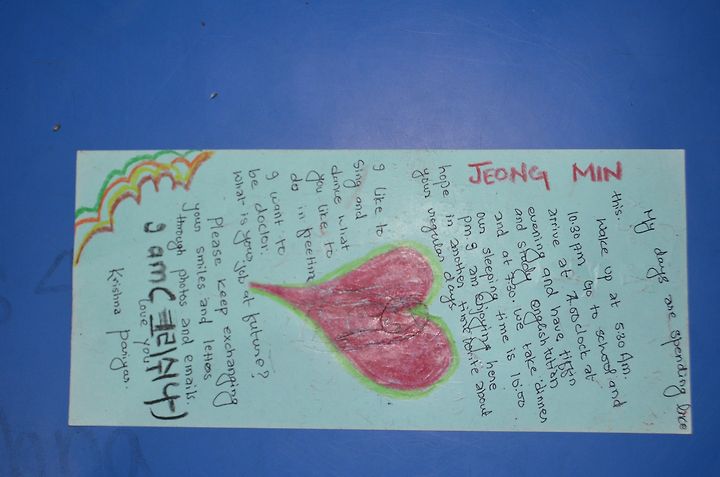 JEONG MIN
My days are spending like
this.
Wake up at 5:30 Am.
10:30 Am go to school and
arrive at clock at
evening and have tiffin
and study english tution
and at 7:30. We take dinner
our sleeping time is 10:00
pm. I am enjoying here
hope in another time write about
your regular days
I like to
sing and
dance what
you like to
do in
I want to
be doctor.
what is your job at future?
Please keep exchanging
your smiles and letters
through photos and emails.
I am (크리쉬나)
love you
Krishna Pariyar.